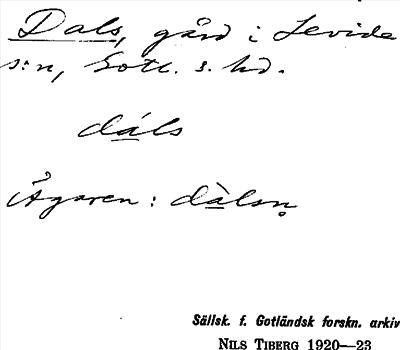 Dals, gård i Levide
s:n, Gotl. s. hd.
dáls
Ägaren: dàlsn̥
Sällsk. f. Gotländsk forskn. arkiv
NILS TIBERG 1920—23